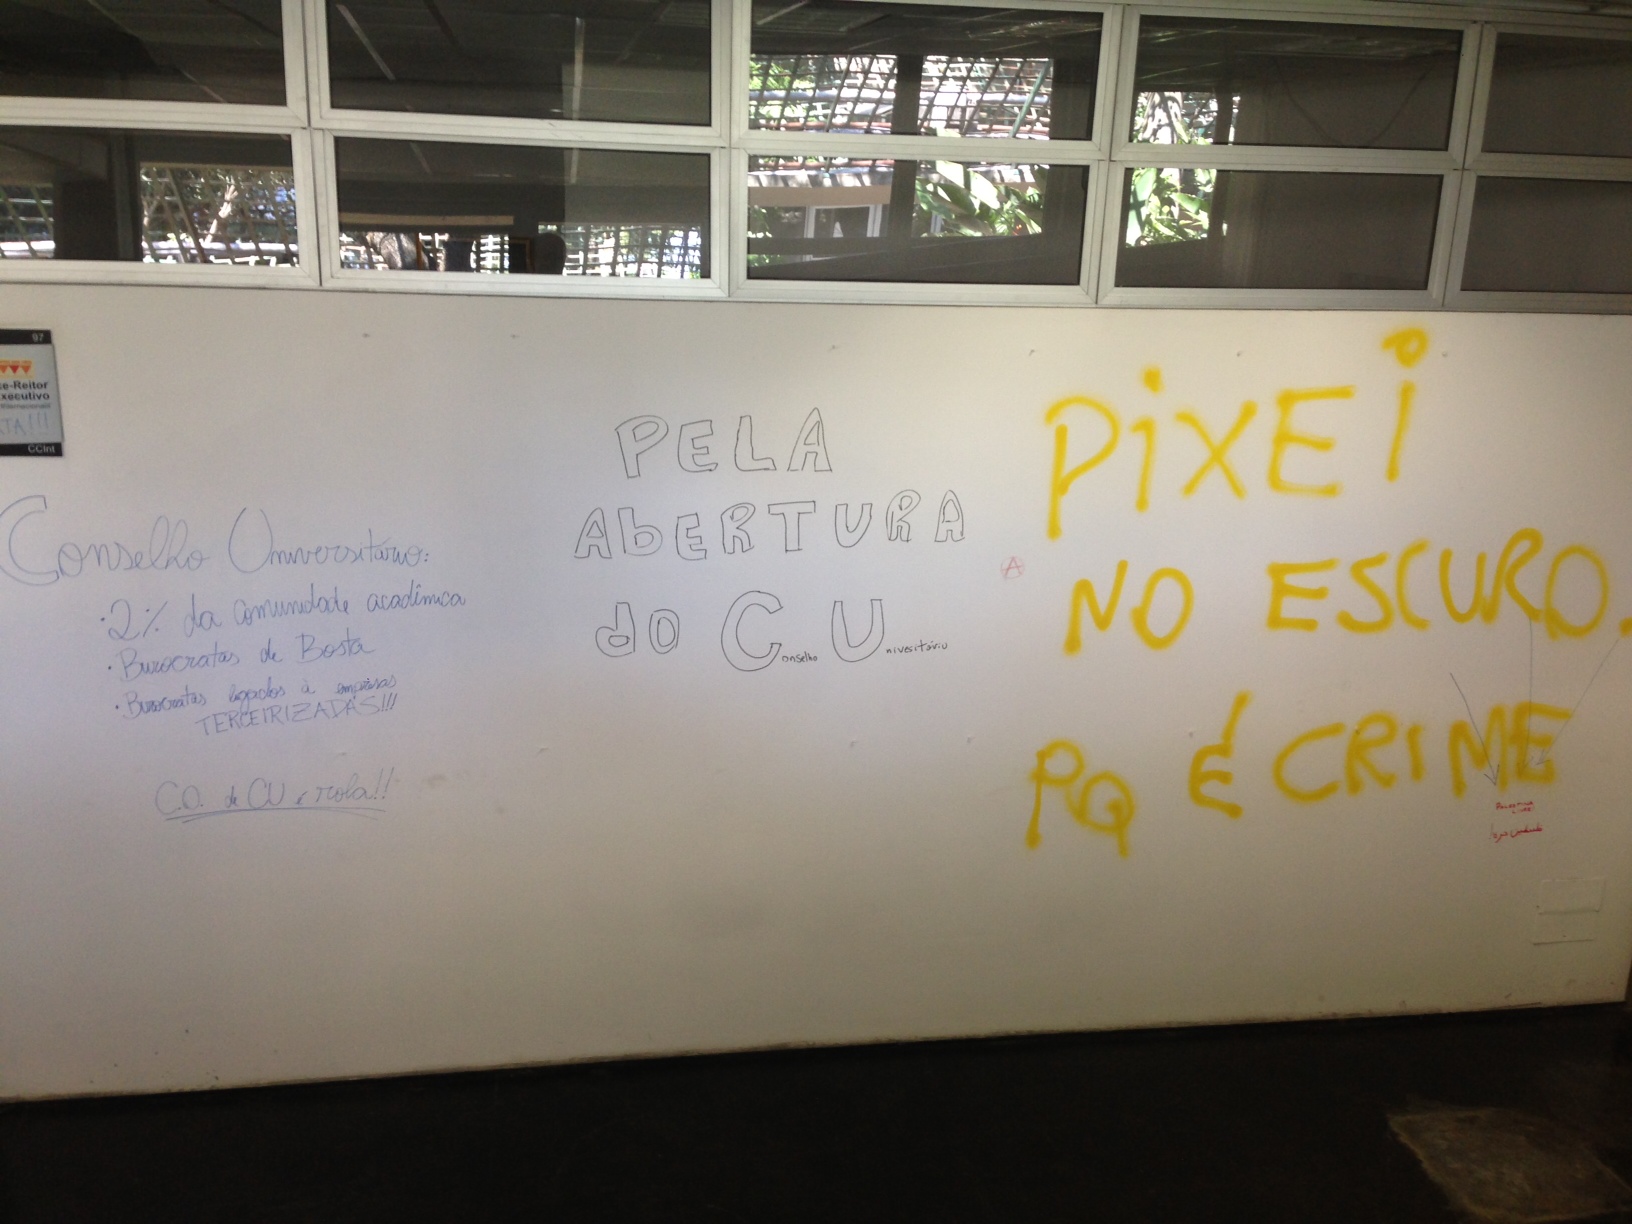 97
ce-Reitor
xecutivo
TA!!!
CCInt
Conselho Universitário:
·2% da comunidade acadêmica
·Burocratas de Bosta
·Burocratas ligados à empresas
TERCEIRIZADAS!!!
C.O. de CU é rola!!
PELA
AbERTURA
do Conselho Univesitáriu
A
PiXEi
NO ESCURO.
PQ É CRIME
PALESTINA
LIVRE!